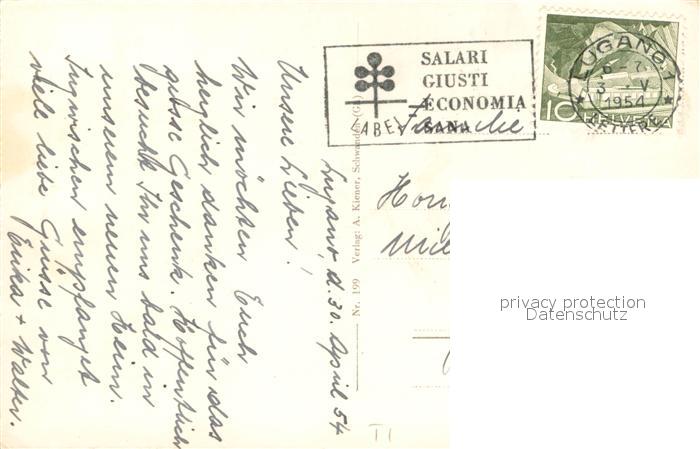 Lugano, d. 30. April 54
Unsere Lieben!
Wir möchten Euch
herzlich danken für das
grosse Geschenk. Hoffentlich
besucht Ihr uns bald in
unserem neuen Heim.
Inzwischen empfanget
viele liebe Grüsse von
Erika + Walter.
SALARI
GIUSTI
ECONOMIA
SANA
LABEL
LUGANO 1
3. V
1954
LETTERE
10
HELVETIA
Familie
Nr. 199 Verlag: A. Kiener, Schwanden (Gl.)
T1
privacy protection
Datenschutz